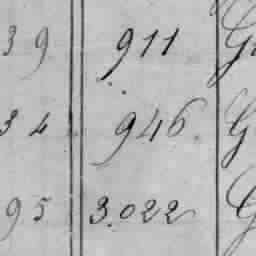 39 911 G
34 946. G
95 3.022 G